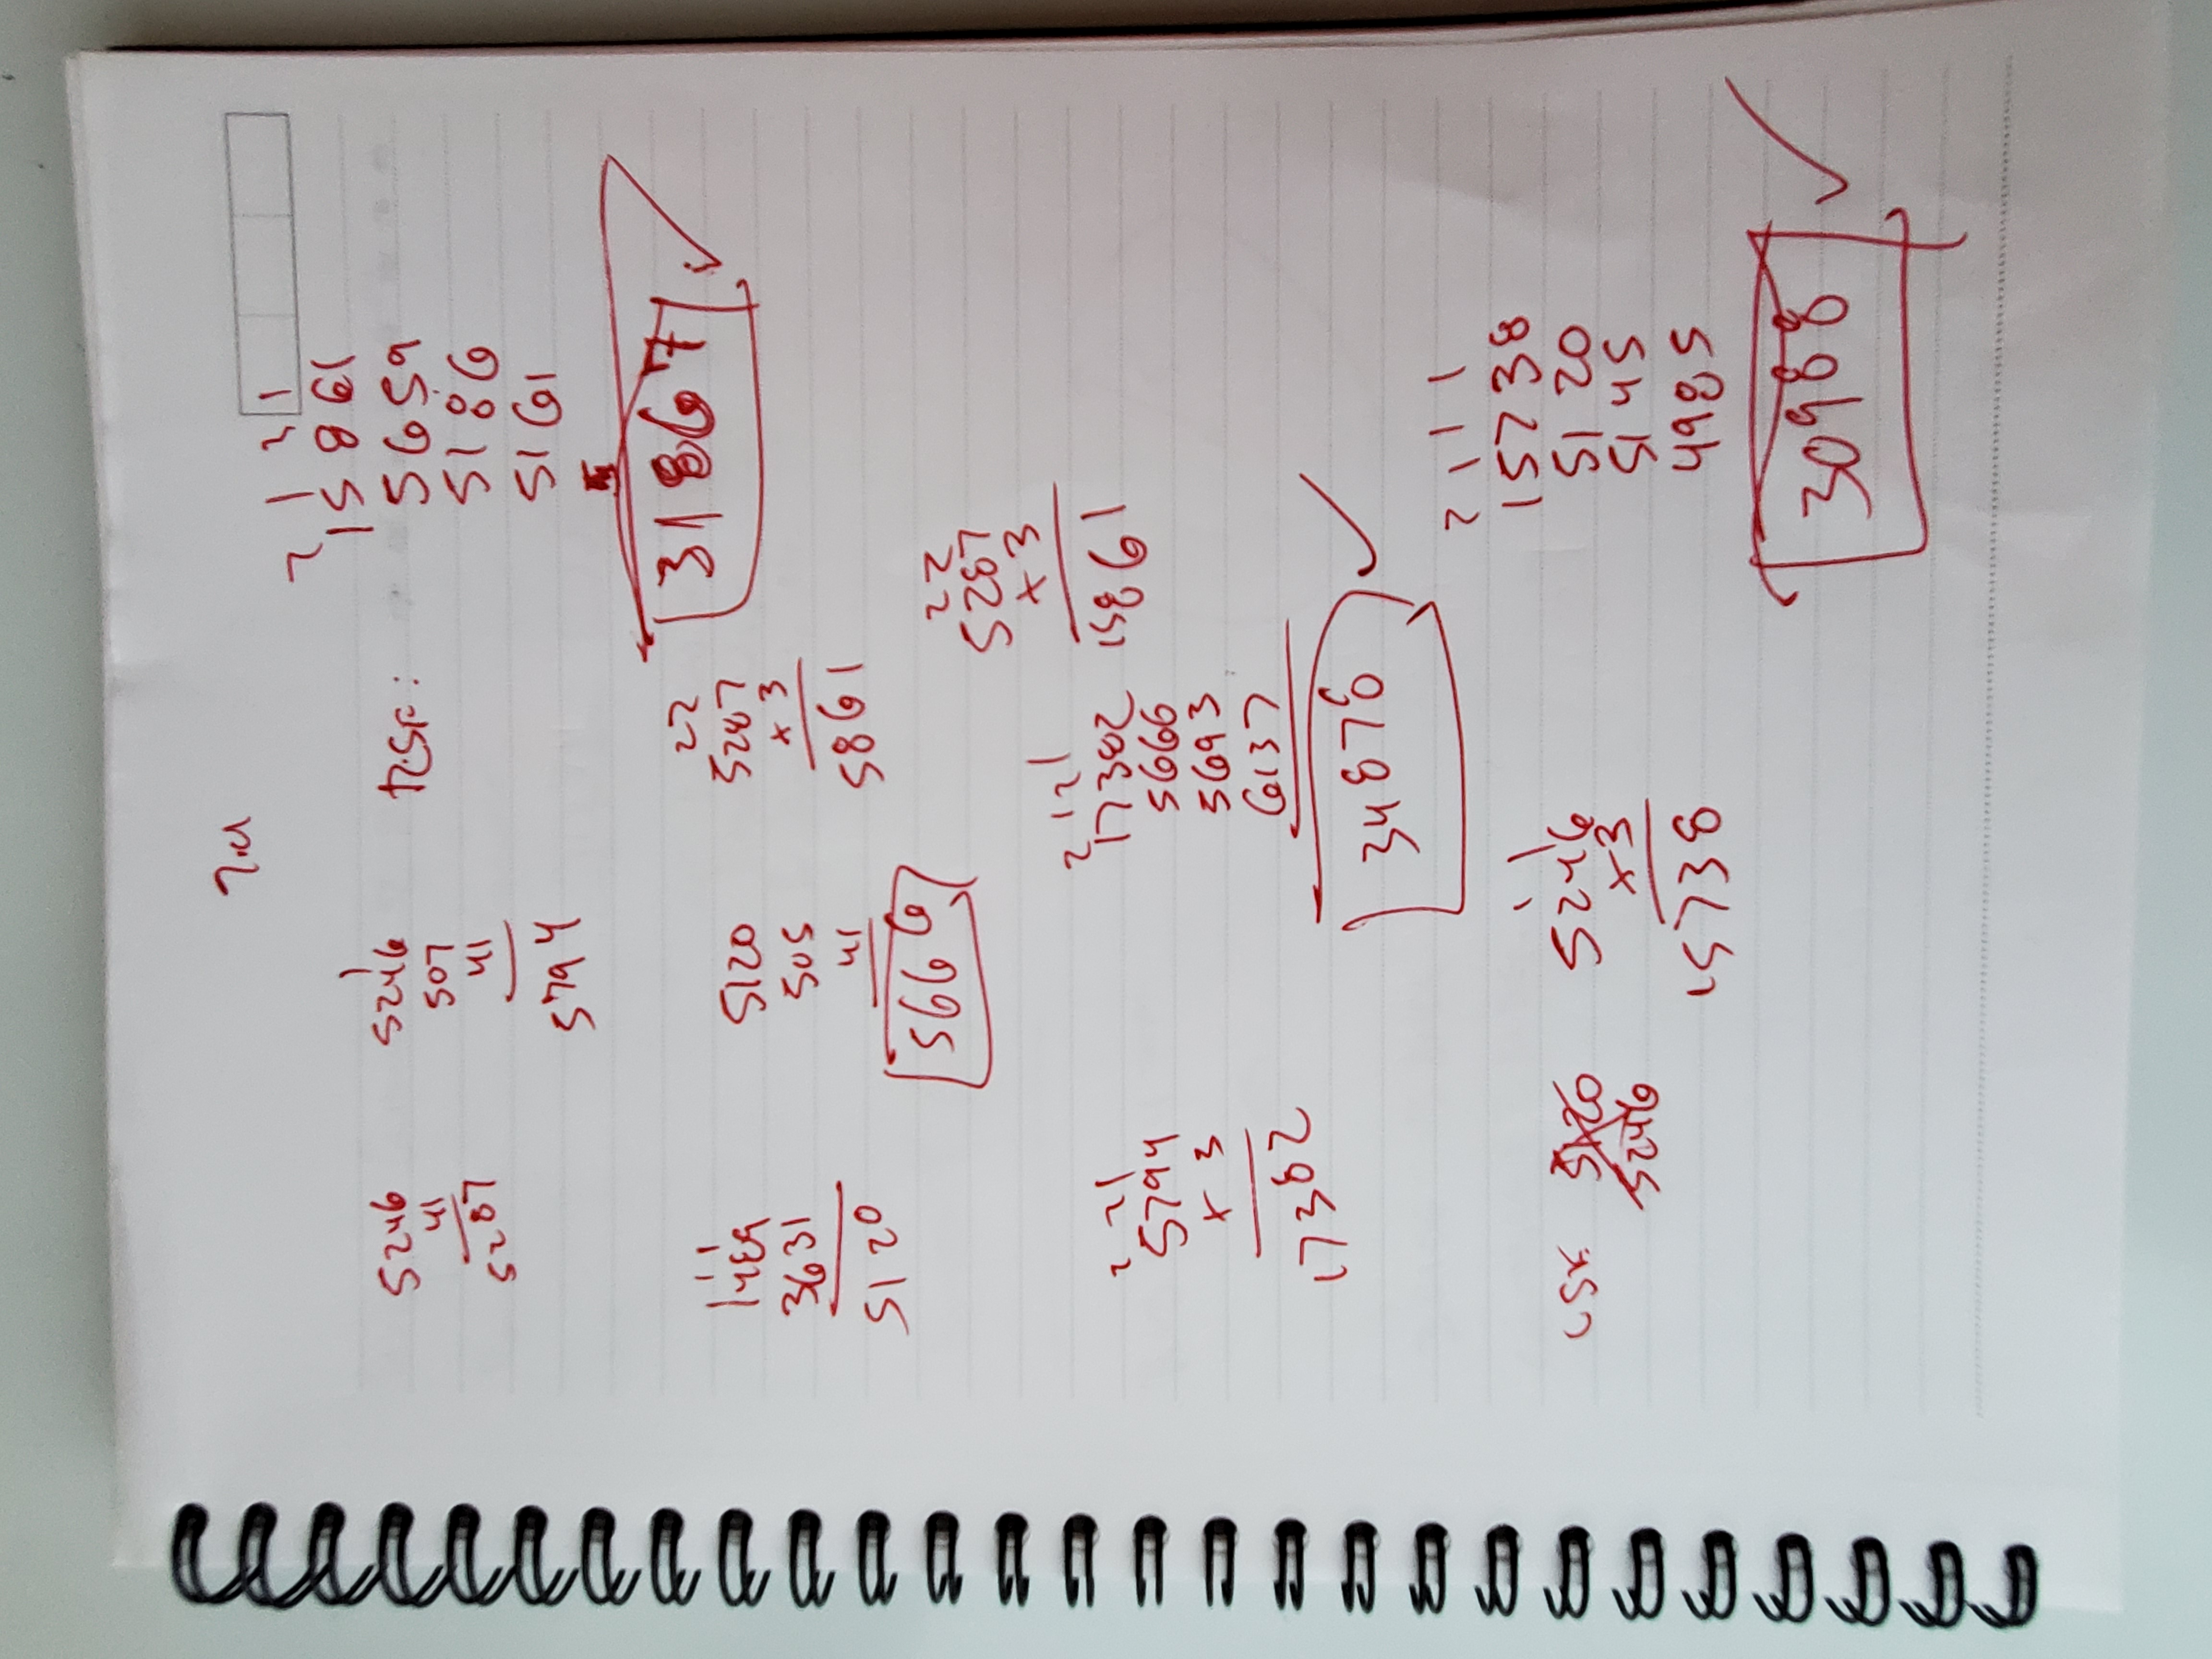 5246
41
5287
5246
507
41
5794
2 1 2 1
15861
5659
5186
5161
31867
1 1
1489
3631
5120
5120
505
41
5666
2 2
5287
x 3
15861
2 2
5287
x 3
15861
2 2 1
5794
x 3
17382
2 1 2 1
17382
5666
5693
6137
34878
5120
5246
1 1
5246
x 3
15738
2 1 1 1
15738
5120
5145
4985
30988